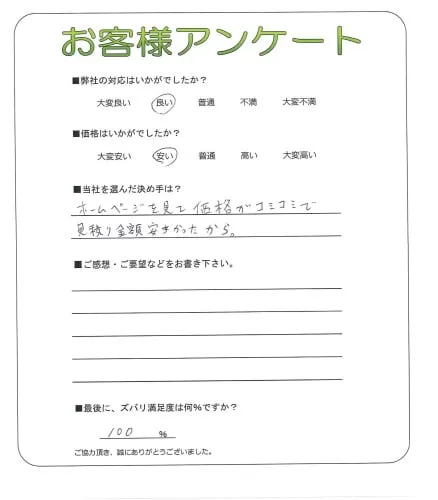 お客様アンケート
■弊社の対応はいかがでしたか？
大変良い 良い 普通 不満 大変不満
■価格はいかがでしたか？
大変安い 安い 普通 高い 大変高い
■当社を選んだ決め手は？
ホームページを見て価格がコミコミで
見積り金額安きかったから。
■ご感想・ご要望などをお書き下さい。
■最後に、ズバリ満足度は何％ですか？
100 %
ご協力頂き、誠にありがとうございました。